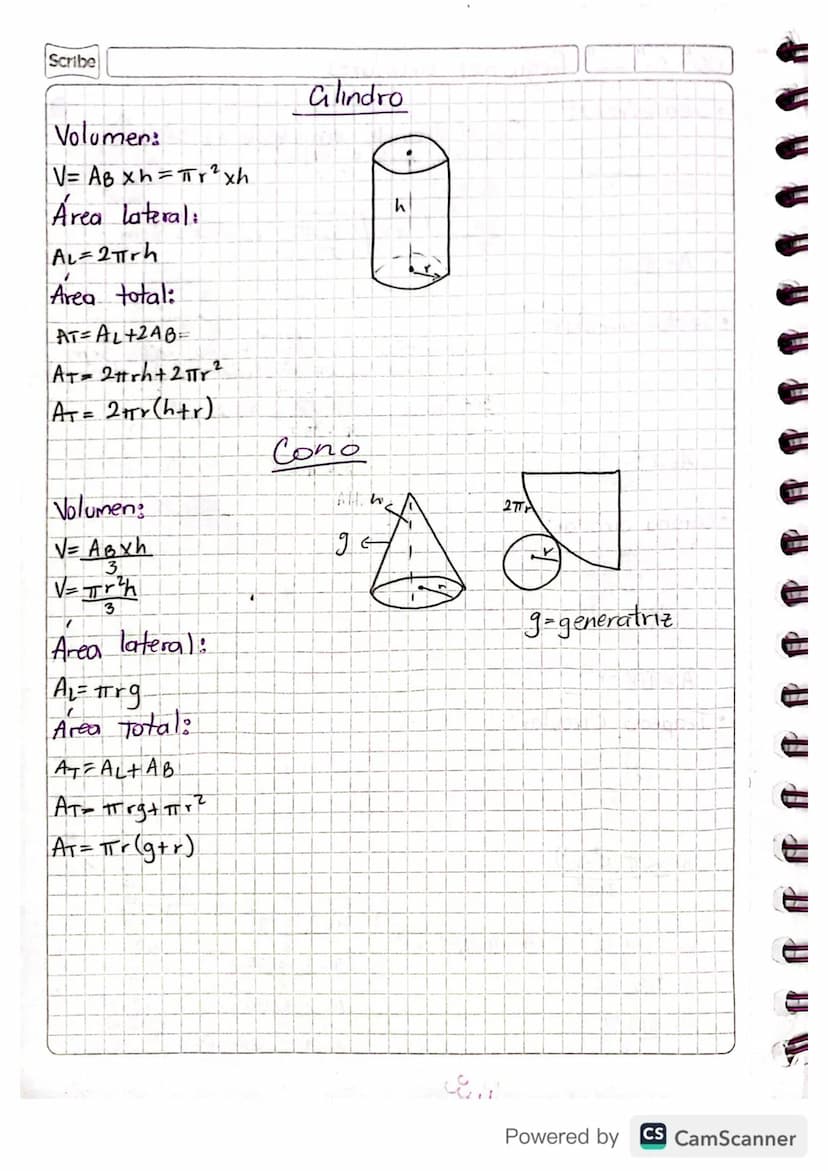 Scribe
Cilindro
Volumen:
V= AB xh = πr² xh
Área lateral:
AL = 2πrh
Área total:
AT= AL+2AB=
AT= 2πrh+2πr²
AT= 2πr(h+r)
h
r
Cono
Volumen:
V= AB xh
3
V= πr²h
3
Área lateral:
AL= πrg
Área Total:
AT= AL+AB
AT= πrg+πr²
AT= πr(g+r)
h
g
r
2πr
r
g=generatriz
Powered by CS CamScanner